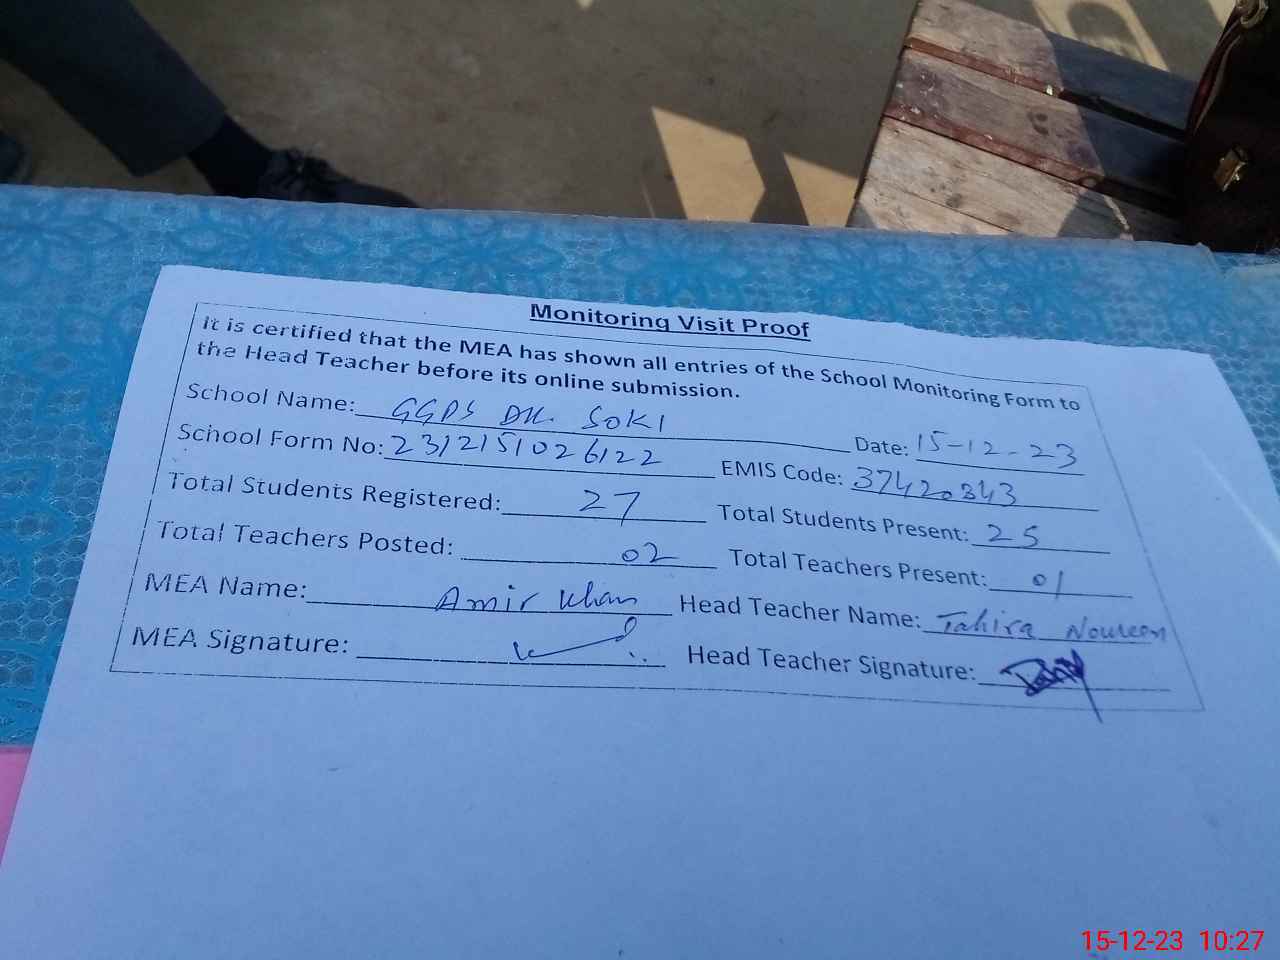 Monitoring Visit Proof
It is certified that the MEA has shown all entries of the School Monitoring Form to
the Head Teacher before its online submission.
School Name: GGPS DK. SOKI Date: 15-12-23
School Form No: 2312151026122 EMIS Code: 37420343
Total Students Registered: 27 Total Students Present: 25
Total Teachers Posted: 02 Total Teachers Present: 01
MEA Name: Amir Khan Head Teacher Name: Tahira Noureen
MEA Signature: Head Teacher Signature:
15-12-23 10:27